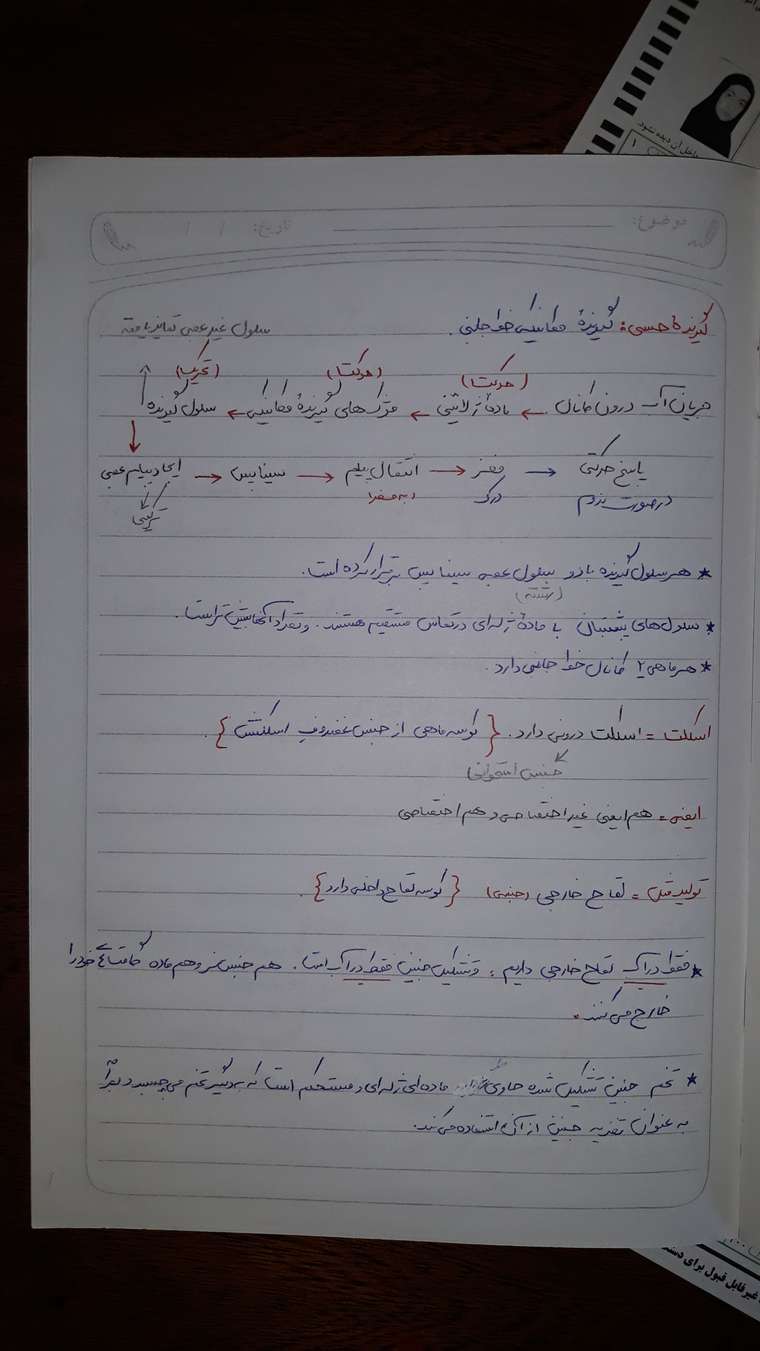 داخل آن دیده نشود.
۱
موضوع: تاریخ: / /
گیرندهٔ حسی: گیرندهٔ مکانیکی خط جانبی. سلول غیر عصبی تمایز یافته
(حرکت) (حرکت) (تحریک)
جریان آب درون کانال ← مادهٔ ژلاتینی ← مژک‌های گیرندهٔ مکانیکی ← سلول گیرنده
پاسخ حرکتی ← مغز ← انتقال پیام ← سیناپس ← ایجاد پیام عصبی
در صورت لزوم درک (به مغز)
* هر سلول گیرنده با دو سلول عصبی سیناپس برقرار کرده است.
(رشته)
* سلول‌های پشتیبان با مادهٔ ژله‌ای در تماس مستقیم هستند. و تعداد آنها بیش‌تر است.
* هر ماهی ۲ کانال خط جانبی دارد.
اسکلت = اسکلت درونی دارد. {کوسه ماهی از جنس غضروف اسکلتش}.
جنس استخوانی
ایمنی = هم ایمنی غیر اختصاصی و هم اختصاصی
تولید مثل = لقاح خارجی (جنسی) {کوسه لقاح داخلی دارد}.
* فقط در آب لقاح خارجی داریم، و تشکیل جنین فقط در آب است. هم جنس نر و هم ماده گامت‌های خود را
خارج می‌کنند.
* تخم جنین تشکیل شده حاوی ماده‌ای ژله‌ای و مستحکم است که به دیگر تخم می‌چسبد و بعداً
به عنوان تغذیه جنین از آن استفاده می‌کند.
غیرقابل قبول برای